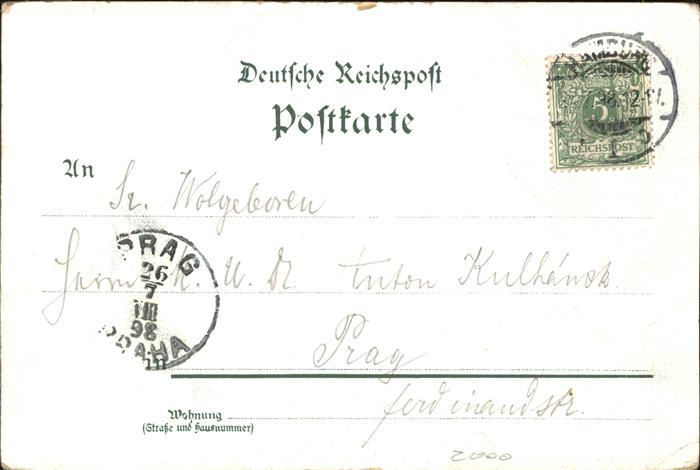 Deutsche Reichspost
Postkarte
HAMBURG
98.12-1N.
5
REICHSPOST
1
An
Sr. Wolgeboren
Herrn K. U. Dr. Anton Kulhánek
PRAG
26
7
VIII
98
PRAHA
in
Prag
Wohnung
ferdinandstr.
(Straße und Hausnummer)
2000